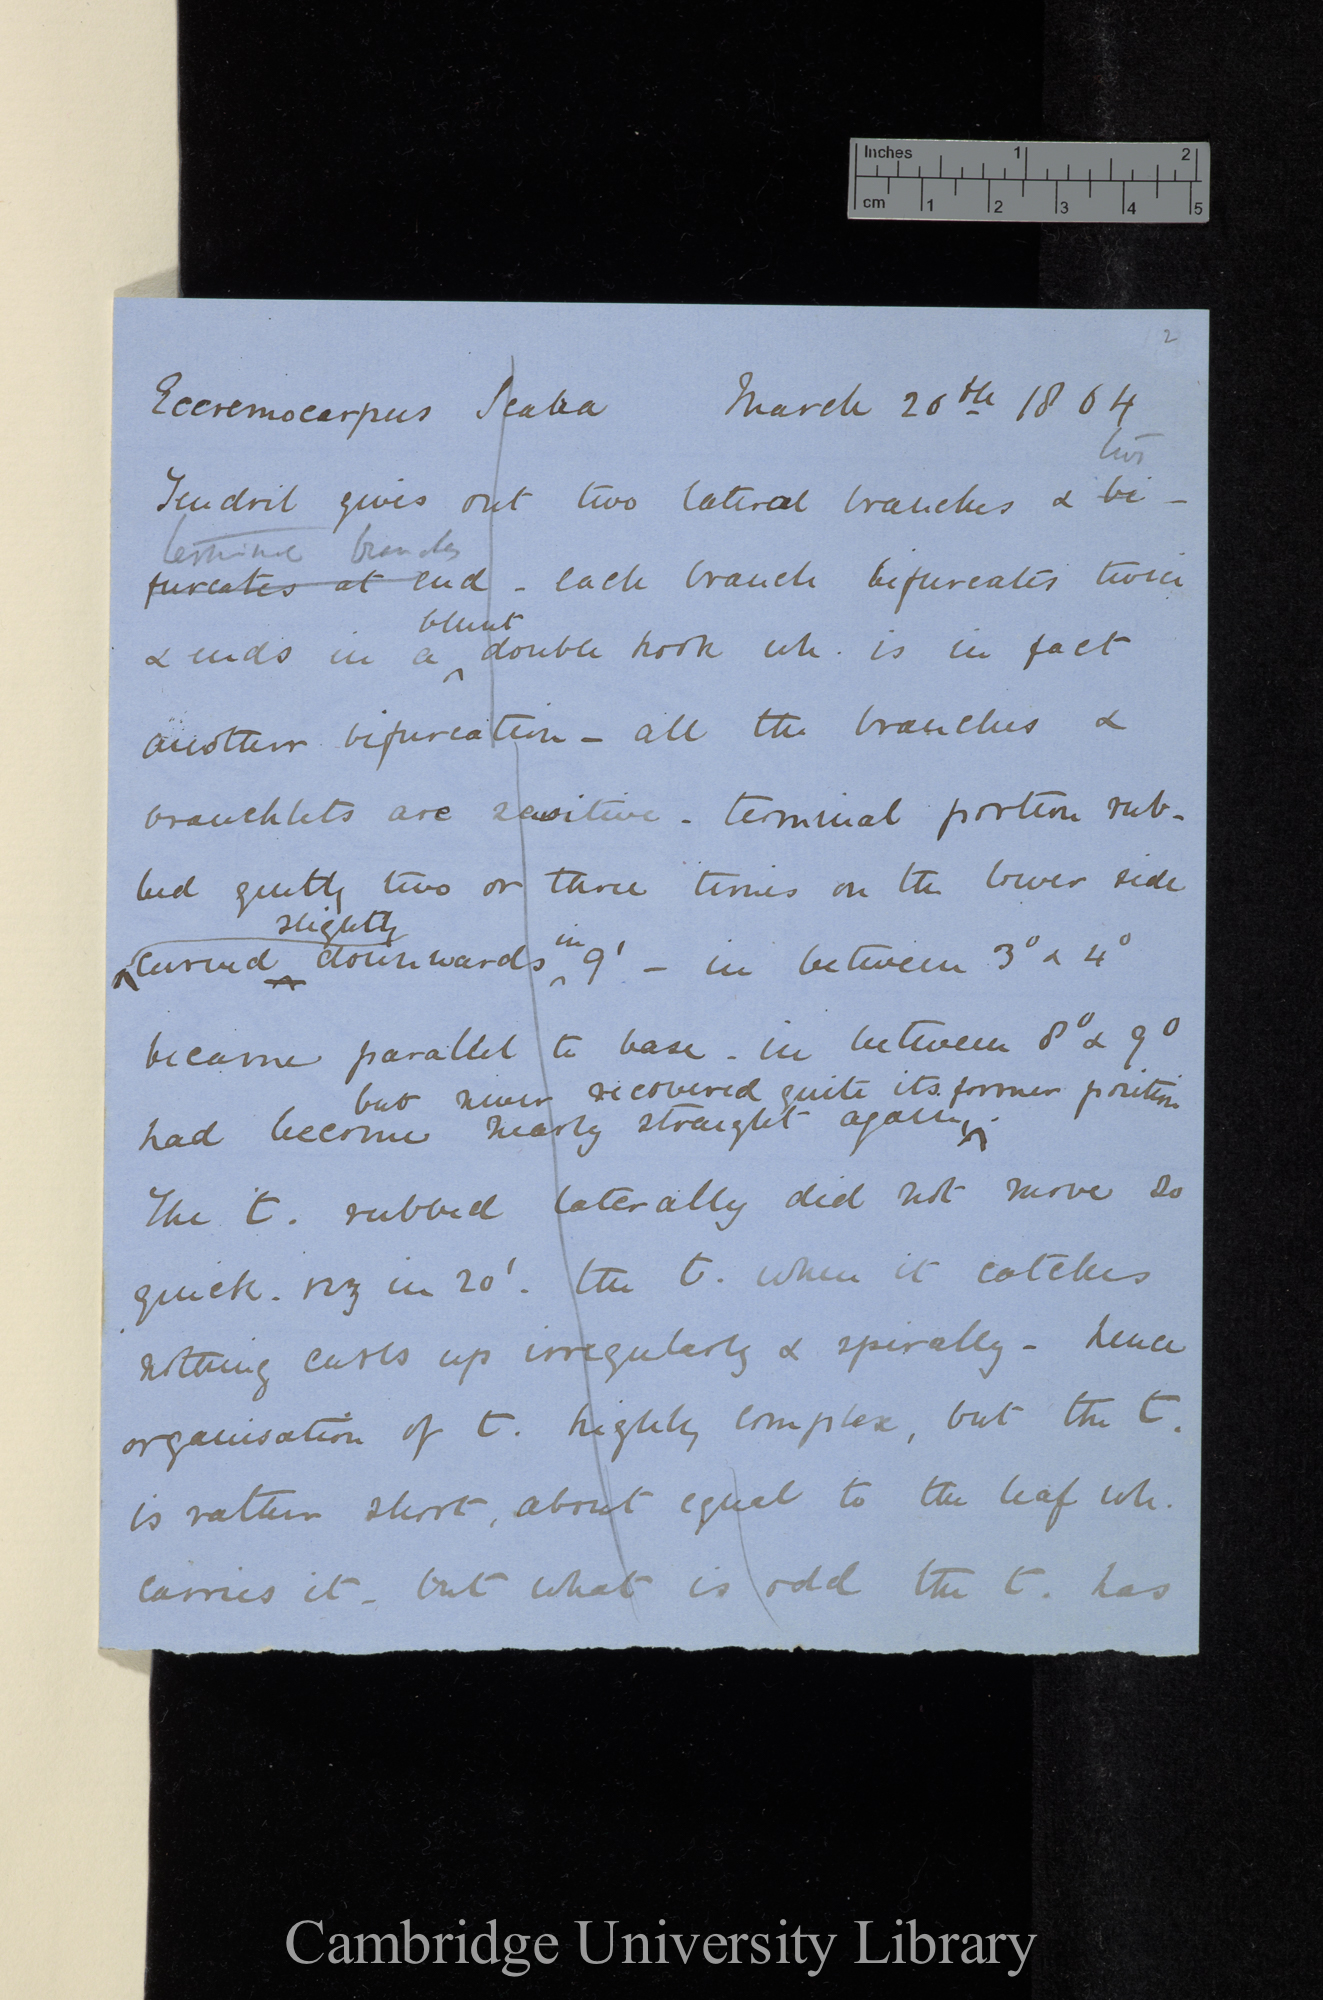 Inches 1 2
cm 1 2 3 4 5
2
Eccremocarpus Scaba March 20th 1864
two
Tendril gives out two lateral branches & bi-
terminal branches
furcates at end - each branch bifurcates twice
blunt
& ends in a double hook wh. is in fact
another bifurcation - all the branches &
branchlets are sensitive - terminal portion rub-
bed gently two or three times on the lower side
slightly
curved downwards in 9' - in between 3° & 4°
became parallel to base - in between 8° & 9°
but never recovered quite its former position
had become nearly straight again,.
The t. rubbed laterally did not move so
quick. viz in 20'. the t. when it catches
nothing curls up irregularly & spirally - hence
organisation of t. highly complex, but the t.
is rather short, about equal to the leaf wh.
carries it - but what is odd the t. has
Cambridge University Library